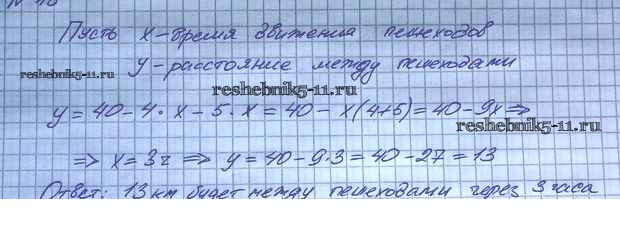 Пусть x-время движения пешеходов
y-расстояние между пешеходами
reshebnik5-11.ru
reshebnik5-11.ru
y=40-4·x-5·x=40-x(4+5)=40-9x⇒
reshebnik5-11.ru
⇒ x=3ч ⇒ y=40-9·3=40-27=13
Ответ: 13 км будет между пешеходами через 3 часа